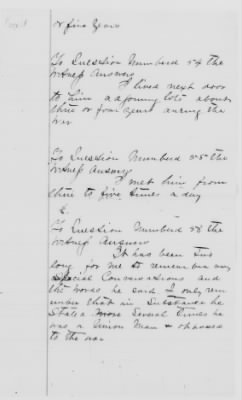 or five years
To Question Numberd 54 the
witness Answers
I lived next door
to him adjoining lots about
three or four years during the
war
To Question Numberd 55 the
witness Answers
I met him from
three to five times a day
&
To Question Numberd 58 the
witness Answers
It has been too
long for me to remember any
special Conversations and
the words he said I only rem
ember that in Substance he
stated Several times he
was a Union Man & opposed
to the war